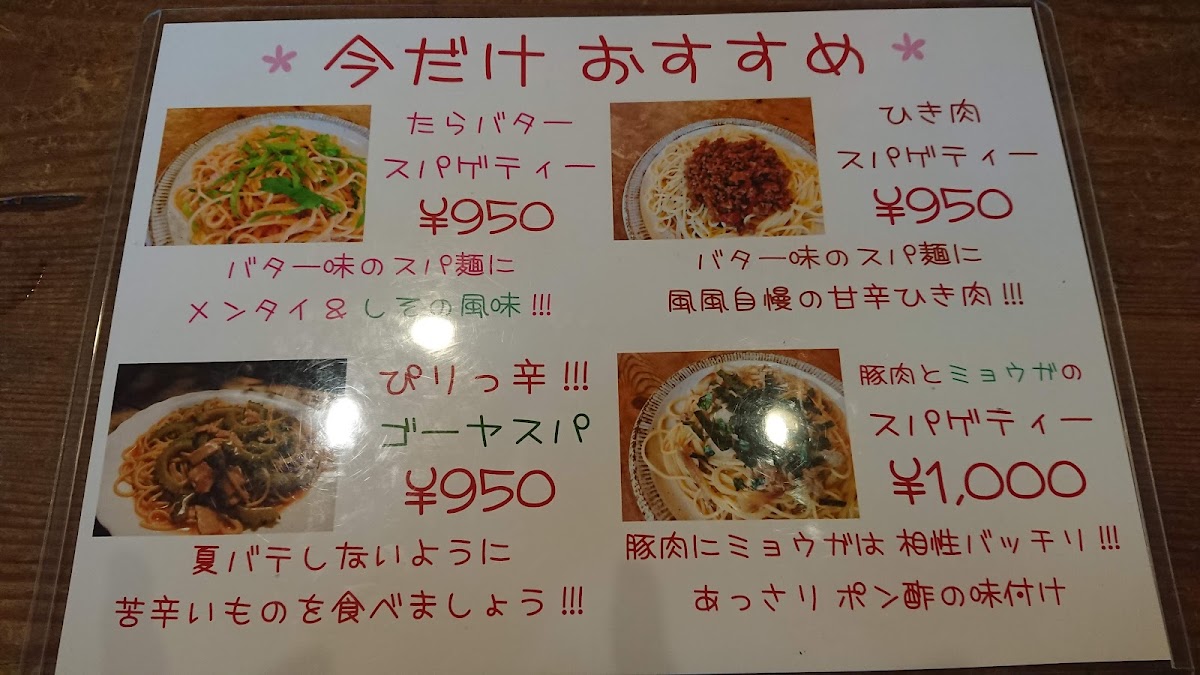 今だけ おすすめ
たらバター
スパゲティー
¥950
バター味のスパ麺に
メンタイ & しその風味 !!!
ひき肉
スパゲティー
¥950
バター味のスパ麺に
風風自慢の甘辛ひき肉 !!!
ぴりっ辛 !!!
ゴーヤスパ
¥950
夏バテしないように
苦辛いものを食べましょう !!!
豚肉とミョウガの
スパゲティー
¥1,000
豚肉にミョウガは 相性バッチリ !!!
あっさり ポン酢の味付け